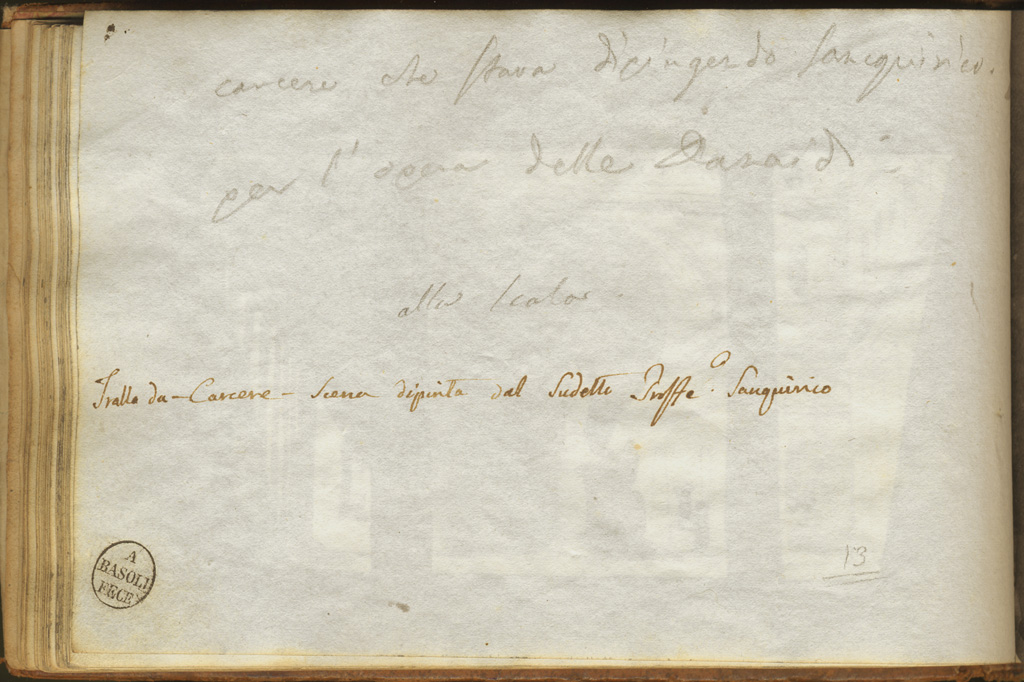 carcere che stava dipingendo Sanquirico.
per l'opera delle Danaidi
alla Scala
Tralla da - Carcere - Scena dipinta dal Sudetto Proffe.o Sanquirico
A
BASOLI
FECE
13